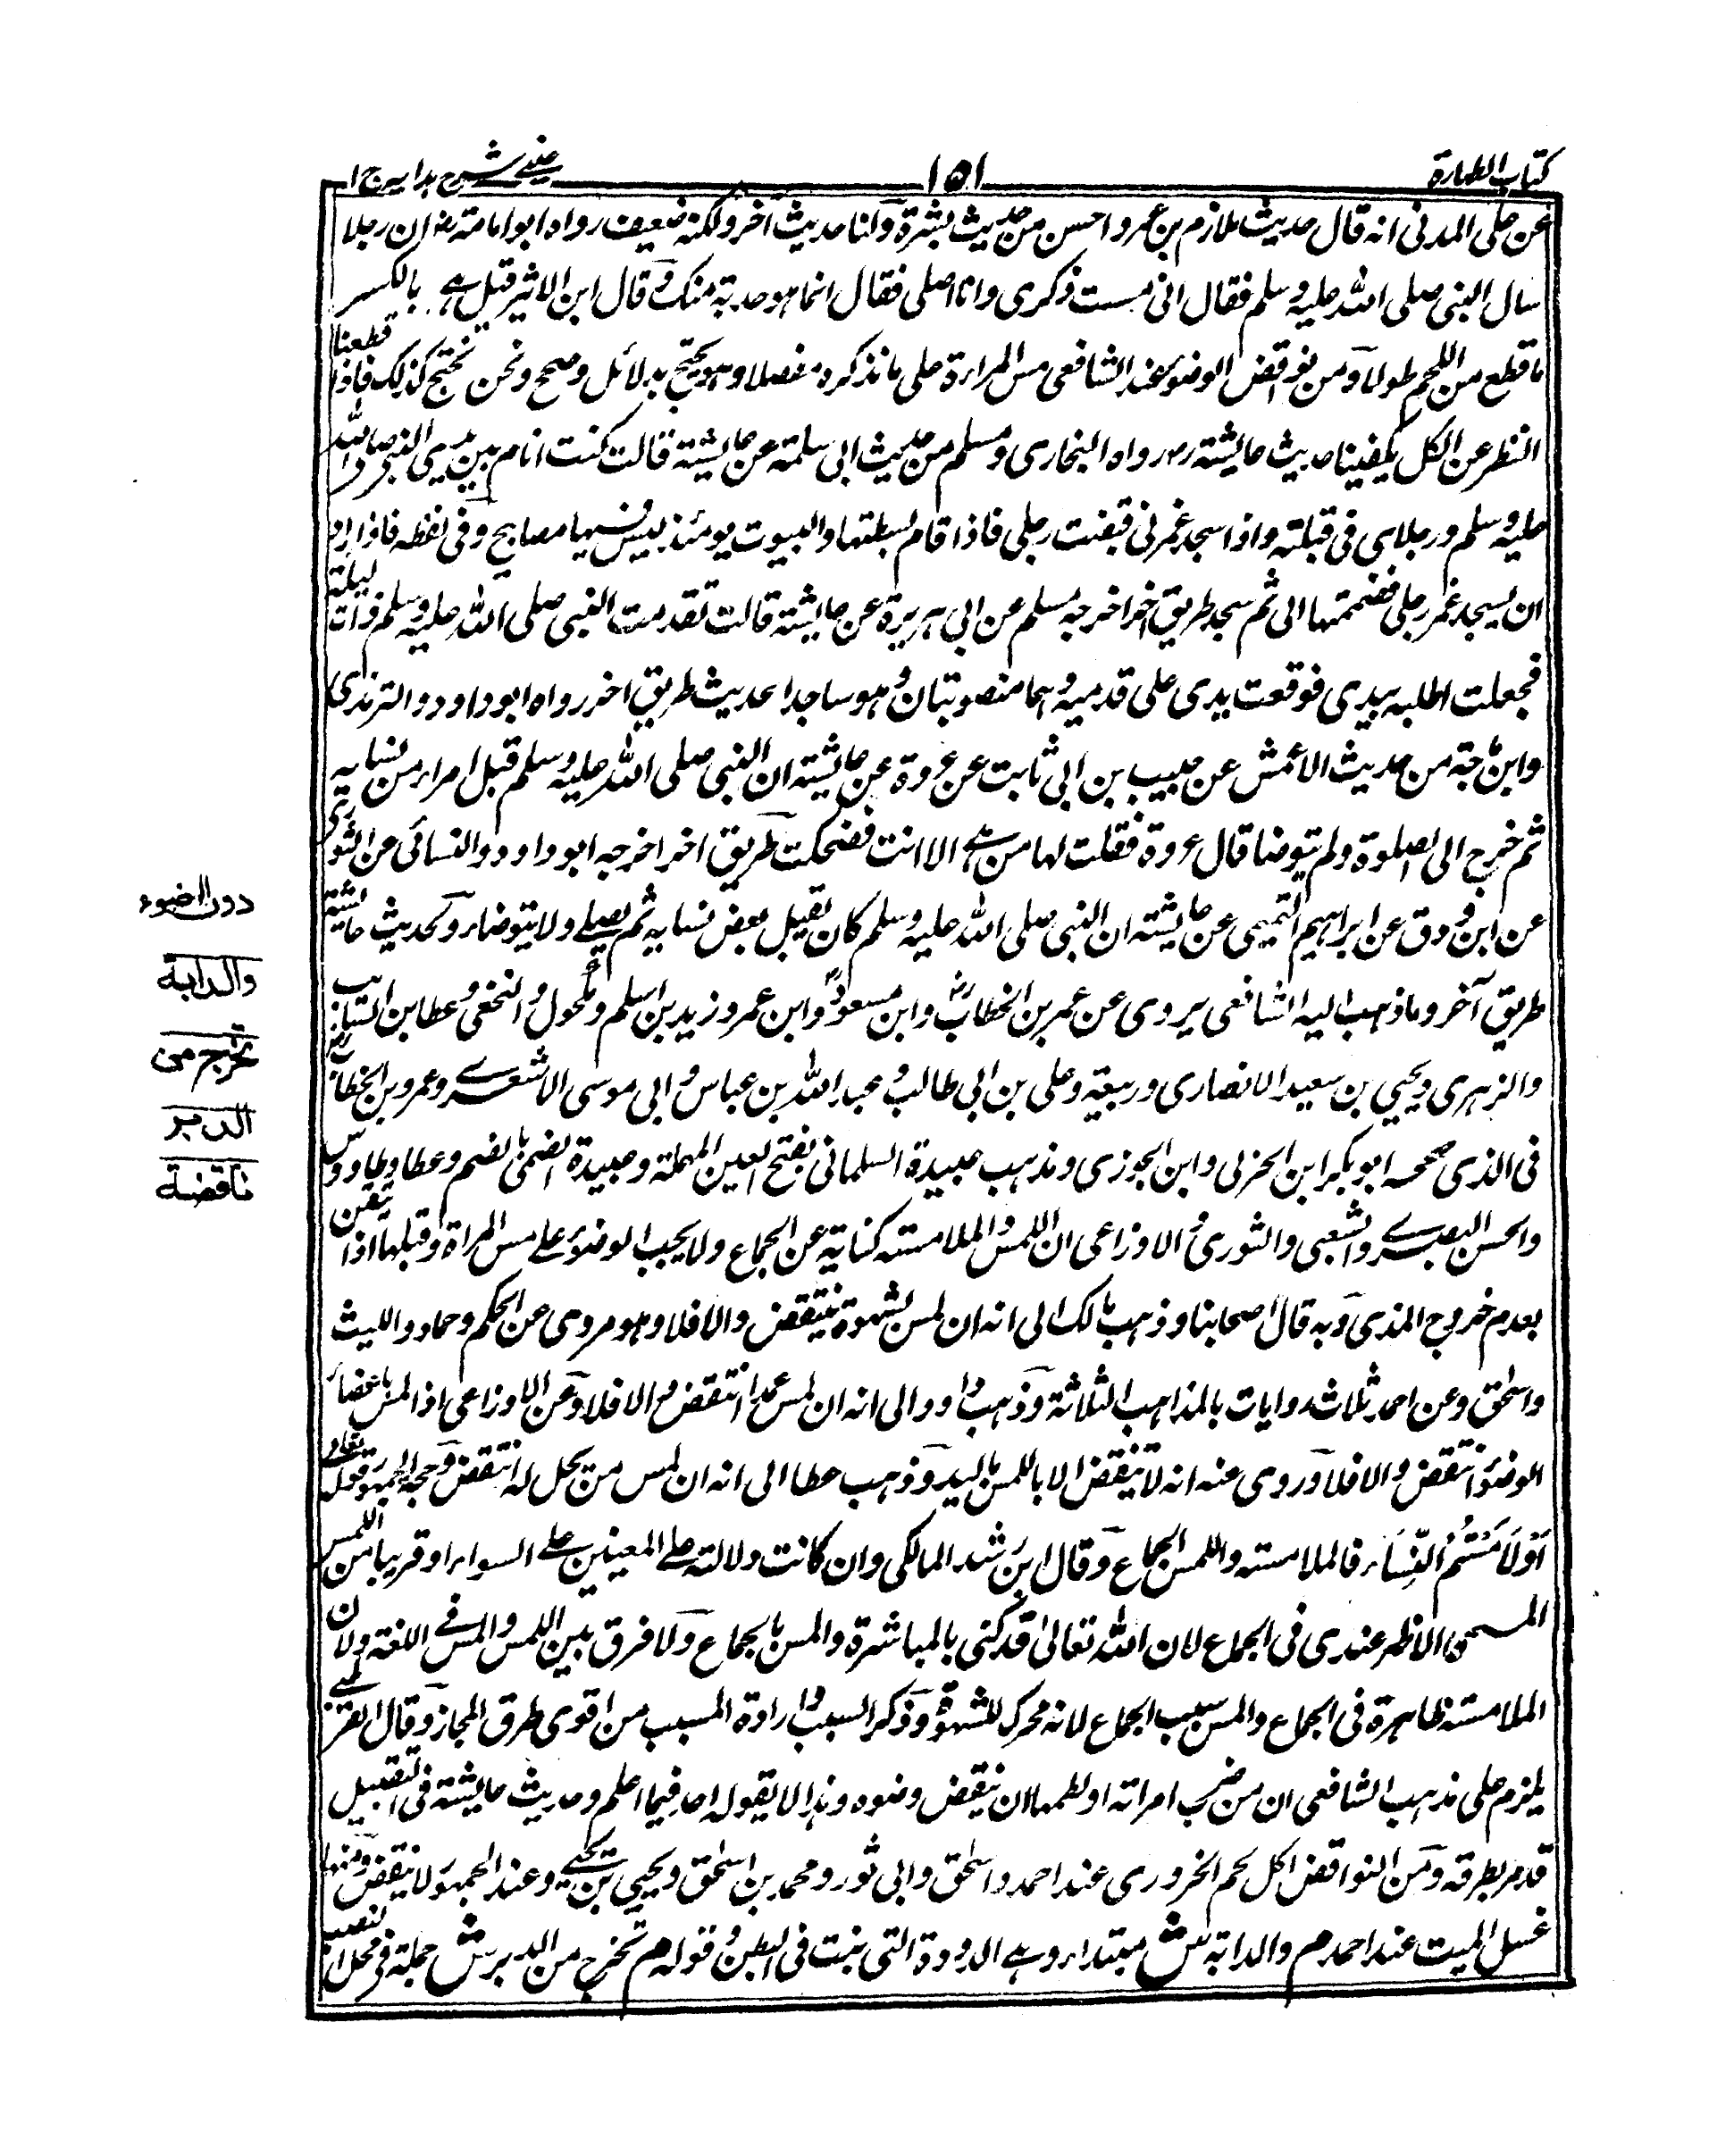 كتاب الطهارة
١٥١
عینی شرح هدایه ج ١
عن على المدنى انه قال حديث ملازم بن عمرو احسن من حديث بسرة ولنا حديث آخر ولكنه ضعيف رواه ابو امامة رض ان رجلا
سال النبى صلى الله عليه وسلم فقال انى مست ذكرى وانا اصلى فقال انما هو حدبة منك وقال ابن الاثير قيل هى بالكسر
ما قطع من اللحم طولا ومن نواقض الوضوء عند الشافعى مس المراءة على ما نذكره مفصلا وهو يحتج بدلائل وصحح ونحن نحتج كذلك فاذا قطعنا
النظر عن الكل يكفينا حديث عايشة رض رواه البخارى ومسلم من حديث ابى سلمة عن عايشة قالت كنت انام بين يدى النبى صلى الله
عليه وسلم ورجلاى فى قبلته واذا سجد غمزنى قبضت رجلى فاذا قام بسطتها والبيوت يومئذ ليس فيها مصابيح وفى لفظه فاذا اراد
ان يسجد غمز رجلى فضممتها الى ثم سجد طريق اخر اخرجه مسلم عن ابى هريرة عن عايشة قالت تقدمت النبى صلى الله عليه وسلم ذات ليلة
فجعلت اطلبه بيدى فوقعت يدى على قدميه وهما منصوبتان وهو ساجد الحديث طريق اخر رواه ابو داود والترمذى
وابن ماجة من حديث الاعمش عن حبيب بن ابى ثابت عن عروة عن عايشة ان النبى صلى الله عليه وسلم قبل امراء من نسايه
ثم خرج الى الصلوة ولم يتوضا قال عروة فقلت لها من هى الا انت فضحكت طريق اخر اخرجه ابو داود والنسائى عن الثورى
عن ابى روق عن ابراهيم التيمى عن عايشة ان النبى صلى الله عليه وسلم كان يقبل بعض نسايه ثم يصلى ولا يتوضاء ولحديث عايشة
طريق آخر وما ذهب اليه الشافعى يروى عن عمر بن الخطاب رض وابن مسعود رض وابن عمر وزيد بن اسلم ومكحول والنخعى وعطا بن السايب
والزهرى ويحيى بن سعيد الانصارى وربيعة وعلى بن ابى طالب وعبد الله بن عباس وابى موسى الاشعرى وعمرو بن الخطاب
فى الذى صححه ابو بكر ابن الحزبى وابن الجوزى ومذهب عبيدة السلمانى بفتح العين المهملة وعبيدة الضمى بالضم وعطا وطاووس
والحسن البصرى والشعبى والثورى والاوزاعى ان اللمس والملامسة كناية عن الجماع ولا يجب الوضوء على مس المراة وقبلها اذا تيقن
بعدم خروج المذى وبه قال اصحابنا وذهب مالك الى انه ان لمس بشهوة ينتقض والا فلا وهو مروى عن الحكم وحماد والليث
واسحق وعن احمد ثلاث روايات بالمذاهب الثلاثة وذهب داود الى انه ان لمس عمدا انتقض والا فلا وعن الاوزاعى اذا لمس باعضاء
الوضوء انتقض والا فلا وروى عنه انه لا ينتقض الا باللمس باليد وذهب عطا الى انه ان لمس من يحل له انتقض وحجة الجمهور قوله تعالى
اَوْ لَامَسْتُمُ النِّسَاء فالملامسة واللمس الجماع وقال ابن رشد المالكى وان كانت دلالته على المعنيين على السواء او قريبا من اللمس
المس والاظهر عندى فى الجماع لان الله تعالى قد كنى بالمباشرة والمس بالجماع ولا فرق بين اللمس والمس فى اللغة ولان
الملامسة ظاهرة فى الجماع والمس سبب الجماع لانه محرك للشهوة وذكر السبب وارادة المسبب من اقوى طرق المجاز وقال
يلزم على مذهب الشافعى ان من ضرب امراته او لطمها ان ينقض وضوه وهذا لا يقوله احد فيما اعلم وحديث عايشة فى التقبيل
قد مر بطرقه ومن النواقض اكل لحم الخزورى عند احمد واسحق وابى ثور ومحمد بن اسحق ويحيى بن يحيى وعند الجمهور لا ينقض ومنها
غسل الميت عند احمد م والدابة ش مبتداء وهى الدودة التى نبتت فى البطن وقوله م تخرج من الدبر ش جملة فى محل النصب
دون الوضوء
والدابة
تخرج من
الدبر
ناقضة